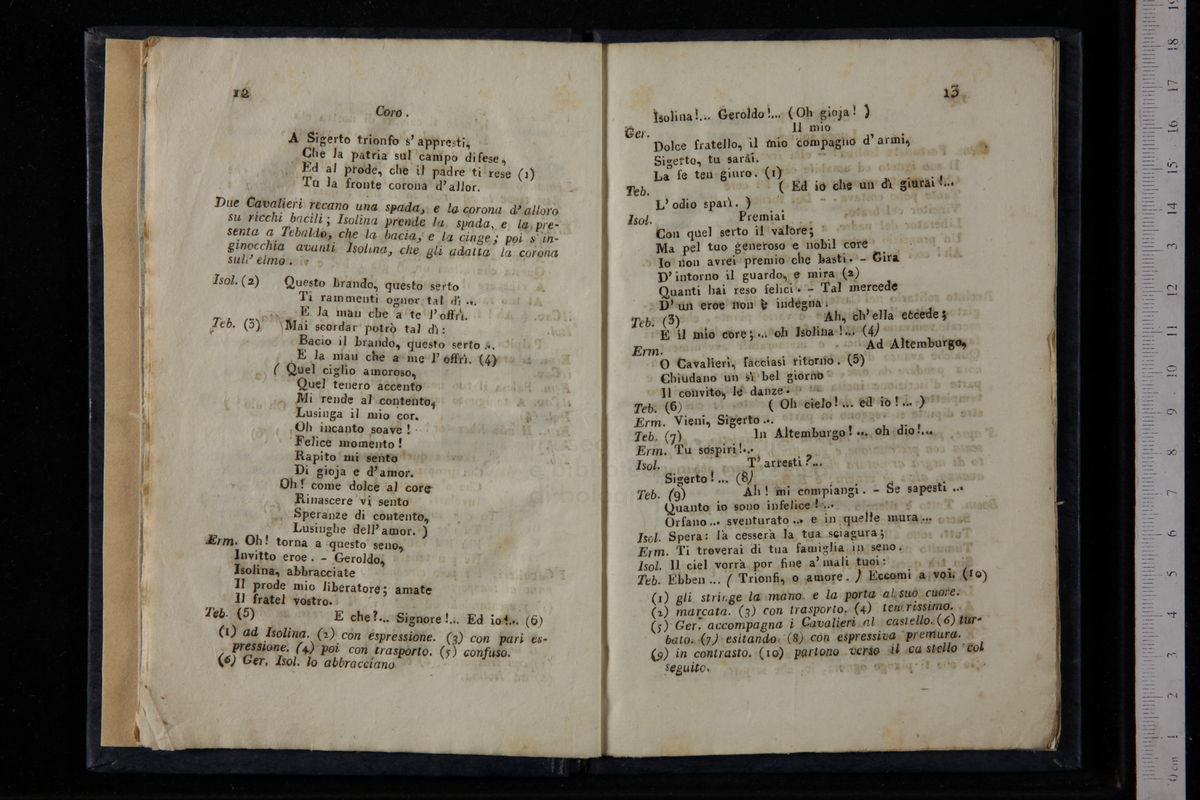 12
Coro.
A Sigerto trionfo s' appresti,
Che la patria sul campo difese,
Ed al prode, che il padre ti rese (1)
Tu la fronte corona d' allor.
Due Cavalieri recano una spada, e la corona d' alloro
su ricchi bacili; Isolina prende la spada, e la pre-
senta a Tebaldo, che la bacia, e la cinge; poi s' in-
ginocchia avanti Isolina, che gli adatta la corona
sull' elmo.
Isol. (2) Questo brando, questo serto
Ti rammenti ognor tal dì ...
E la man che a te l' offrì.
Teb. (3) Mai scordar potrò tal dì:
Bacio il brando, questo serto ...
E la man che a me l' offrì. (4)
( Quel ciglio amoroso,
Quel tenero accento
Mi rende al contento,
Lusinga il mio cor.
Oh incanto soave!
Felice momento!
Rapito mi sento
Di gioja e d' amor.
Oh! come dolce al core
Rinascere vi sento
Speranze di contento,
Lusinghe dell' amor. )
Erm. Oh! torna a questo seno,
Invitto eroe. - Geroldo,
Isolina, abbracciate
Il prode mio liberatore; amate
Il fratel vostro.
Teb. (5) E che?... Signore!... Ed io!... (6)
(1) ad Isolina. (2) con espressione. (3) con pari es-
pressione. (4) poi con trasporto. (5) confuso.
(6) Ger. Isol. lo abbracciano
13
Isolina!... Geroldo!... (Oh gioja! )
Ger. Il mio
Dolce fratello, il mio compagno d' armi,
Sigerto, tu sarai.
La fe ten giuro. (1)
Teb. ( Ed io che un dì giurai!...
L' odio sparì. )
Isol. Premiai
Con quel serto il valore;
Ma pel tuo generoso e nobil core
Io non avrei premio che basti. - Gira
D' intorno il guardo, e mira (2)
Quanti hai reso felici. - Tal mercede
D' un eroe non è indegna.
Teb. (3) Ah, ch' ella eccede;
E il mio core;... oh Isolina!... (4)
Erm. Ad Altemburgo,
O Cavalieri, facciasi ritorno. (5)
Chiudano un sì bel giorno
Il convito, le danze.
Teb. (6) ( Oh cielo!... ed io!... )
Erm. Vieni, Sigerto ...
Teb. (7) In Altemburgo!... oh dio!...
Erm. Tu sospiri!...
Isol. T' arresti?...
Sigerto!... (8)
Teb. (9) Ah! mi compiangi. - Se sapesti ...
Quanto io sono infelice! ...
Orfano... sventurato ... e in quelle mura ...
Isol. Spera: là cesserà la tua sciagura;
Erm. Ti troverai di tua famiglia in seno.
Isol. Il ciel vorrà por fine a' mali tuoi:
Teb. Ebben ... ( Trionfi, o amore. ) Eccomi a voi. (10)
(1) gli stringe la mano e la porta al suo cuore.
(2) marcata. (3) con trasporto. (4) tenerissimo.
(5) Ger. accompagna i Cavalieri al castello. (6) tur-
bato. (7) esitando. (8) con espressiva premura.
(9) in contrasto. (10) partono verso il castello col
seguito.
0 cm 1 2 3 4 5 6 7 8 9 10 11 12 13 14 15 16 17 18 19